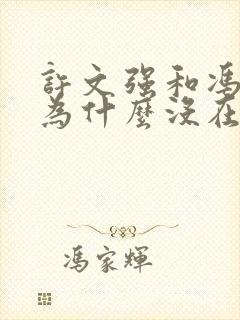 許文强和馮
為什麼沒在
馮家輝